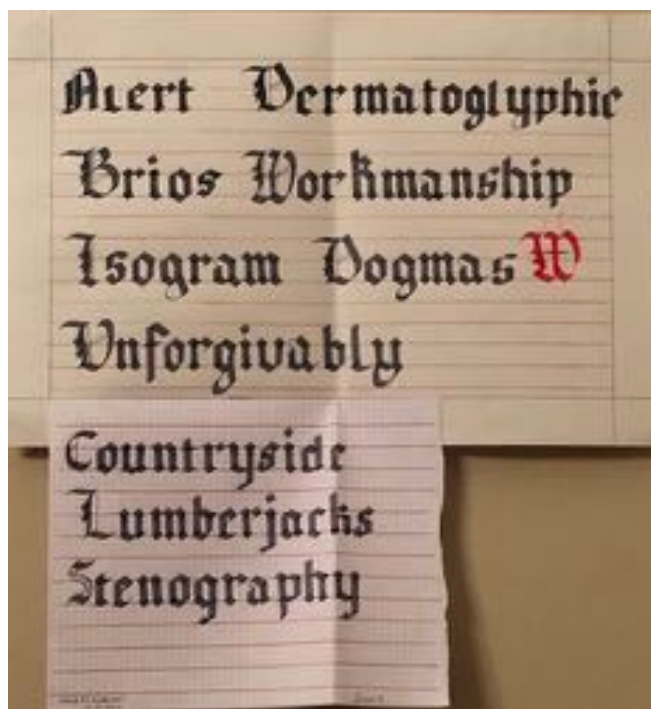 Alert Dermatoglyphic
Brios Workmanship
Isogram Dogmas W
Unforgivably
Countryside
Lumberjacks
Stenography